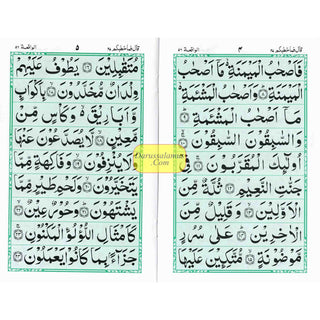 قال فما خطبكم ٢٧
٤
الواقعة ٥٦
فَاَصْحٰبُ الْمَيْمَنَةِ ۙ مَاۤ اَصْحٰبُ
الْمَيْمَنَةِ ۟ وَاَصْحٰبُ الْمَشْـَٔمَةِ ۙ
مَاۤ اَصْحٰبُ الْمَشْـَٔمَةِ ۟
وَالسّٰبِقُوْنَ السّٰبِقُوْنَ ۟
اُولٰٓئِكَ الْمُقَرَّبُوْنَ ۟ فِيْ
جَنّٰتِ النَّعِيْمِ ۟ ثُلَّةٌ مِّنَ
الْاَوَّلِيْنَ ۟ وَقَلِيْلٌ مِّنَ
الْاٰخِرِيْنَ ۟ عَلٰى سُرُرٍ
مَّوْضُوْنَةٍ ۟ مُّتَّكِـِٕيْنَ عَلَيْهَا
قال فما خطبكم ٢٧
٥
الواقعة ٥٦
مُتَقٰبِلِيْنَ ۟ يَطُوْفُ عَلَيْهِمْ
وِلْدَانٌ مُّخَلَّدُوْنَ ۟ بِاَكْوَابٍ
وَّاَبَارِيْقَ ۙ وَكَاْسٍ مِّنْ
مَّعِيْنٍ ۟ لَّا يُصَدَّعُوْنَ عَنْهَا
وَلَا يُنْزِفُوْنَ ۟ وَفَاكِهَةٍ مِّمَّا
يَتَخَيَّرُوْنَ ۟ وَلَحْمِ طَيْرٍ مِّمَّا
يَشْتَهُوْنَ ۟ وَحُوْرٌ عِيْنٌ ۟
كَاَمْثَالِ اللُّؤْلُؤِ الْمَكْنُوْنِ ۟
جَزَآءًۢ بِمَا كَانُوْا يَعْمَلُوْنَ ۟
Darussalaminc
.Com